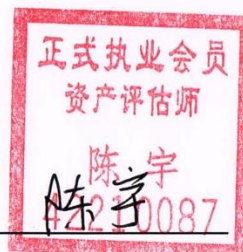 正式执业会员
资产评估师
陈宇
陈宇
42210087